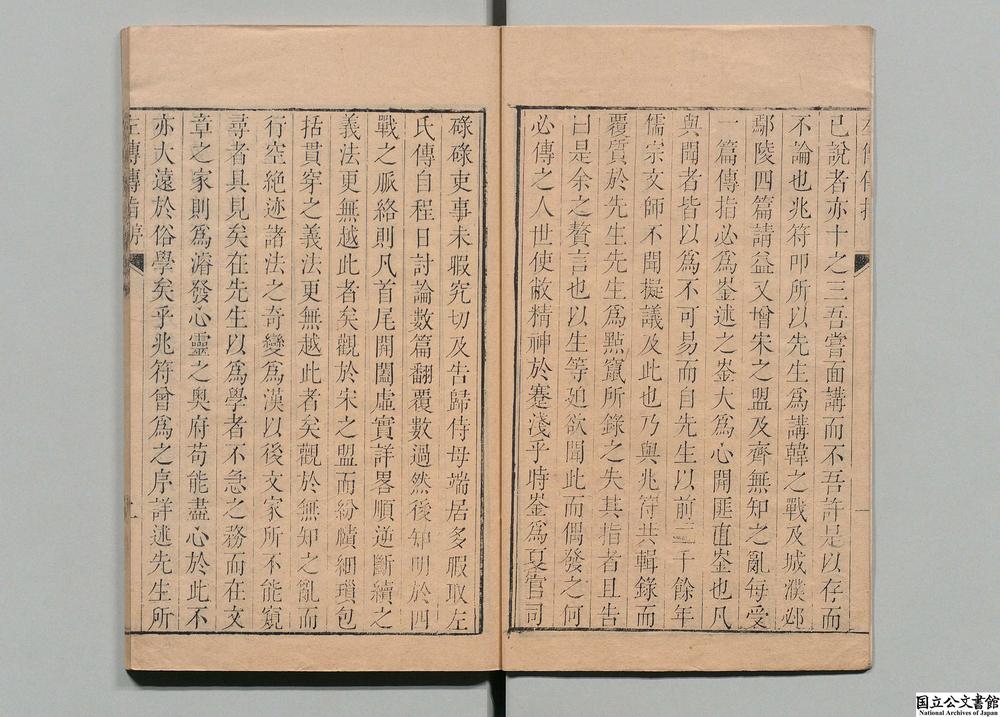 已說者亦十之三吾嘗面講而不吾許是以存而
不論也兆符叩所以先生爲講韓之戰及城濮邲
鄢陵四篇請益又增宋之盟及齊無知之亂每受
一篇傳指必爲崟述之崟大爲心開匪直崟也凡
與聞者皆以爲不可易而自先生以前二千餘年
儒宗文師不聞擬議及此也乃與兆符共輯錄而
覆質於先生先生爲點竄所錄之失其指者且告
曰是余之贅言也以生等廹欲聞此而偶發之何
必傳之人世使敝精神於蹇淺乎時崟爲夏官司
碌碌吏事未暇究切及告歸侍母端居多暇取左
氏傳自程日討論數篇翻覆數過然後知明於四
戰之脈絡則凡首尾開闔虛實詳畧順逆斷續之
義法更無越此者矣觀於宋之盟而紛賾細瑣包
括貫穿之義法更無越此者矣觀於無知之亂而
行空絕迹諸法之奇變爲漢以後文家所不能窺
尋者具見矣在先生以爲學者不急之務而在文
章之家則爲濬發心靈之奧府苟能盡心於此不
亦大遠於俗學矣乎兆符曾爲之序詳述先生所
左傳傳指序
国立公文書館
National Archives of Japan